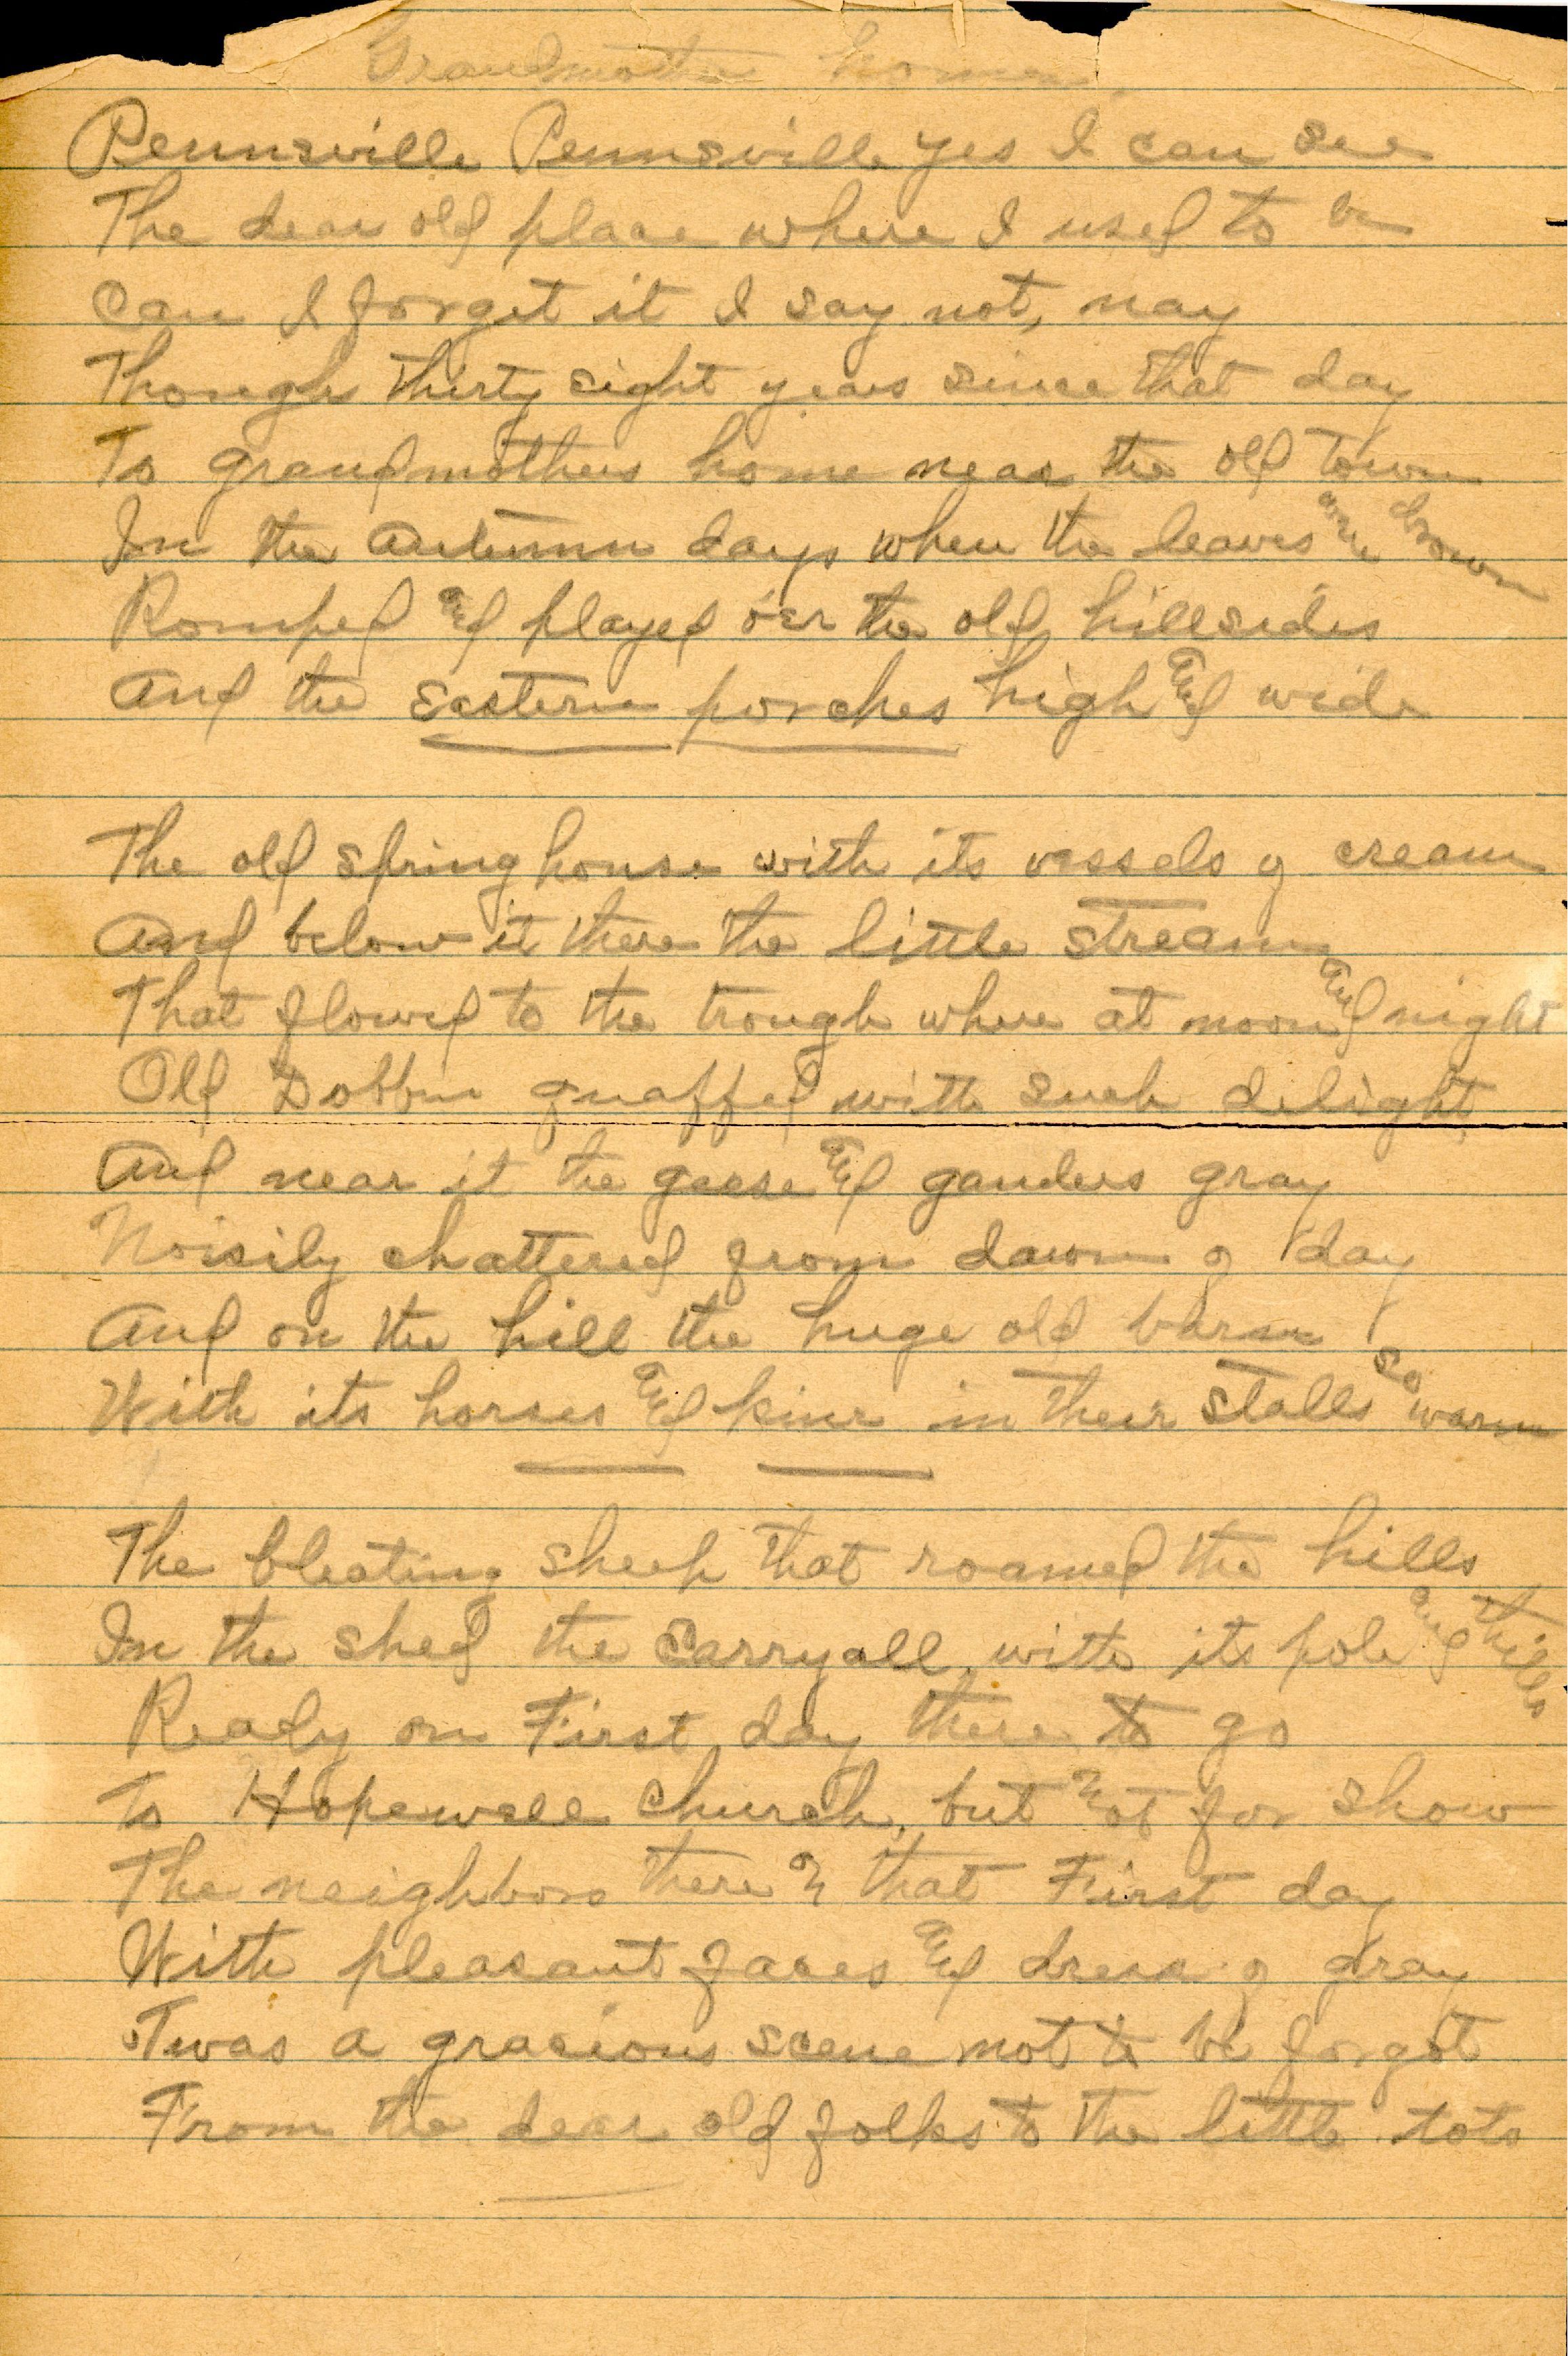 Grandmothers home
Pennsville Pennsville yes I can see
The dear old place where I used to be
Can I forget it I say not, nay
Though thirty eight years since that day
To grandmothers home near the old town
In the Autumn days when the leaves are brown
Romped and played o'er the old hillsides
And the Eastern porches high and wide
The old spring house with its vessels of cream
And below it there the little stream
That flowed to the trough where at noon and night
Old Dobbin quaffed with such delight
And near it the geese and ganders gray
Noisily chattered from dawn of day
And on the hill the huge old barn
With its horses and kine in their stalls so warm
The bleating sheep that roamed the hills
In the shed the Carryall, with its pole and thills
Ready on First day there to go
To Hopewell Church, but not for show
The neighbors there on that First day
With pleasant faces and dress of gray
'Twas a gracious scene not to be forgot
From the dear old folks to the little tots